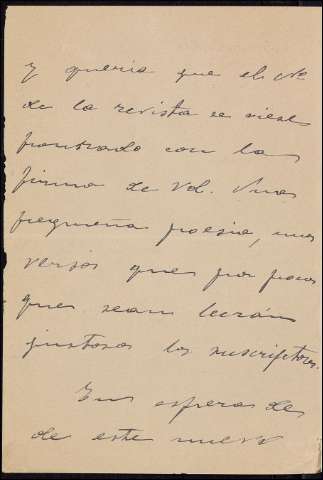 y queria que el No
de la revista se viese
honrado con la
firma de Vd. Una
pequeña poesia, unos
versos que por pocos
que sean leerán
gustosos los suscriptores.
En espera de
de este nuevo